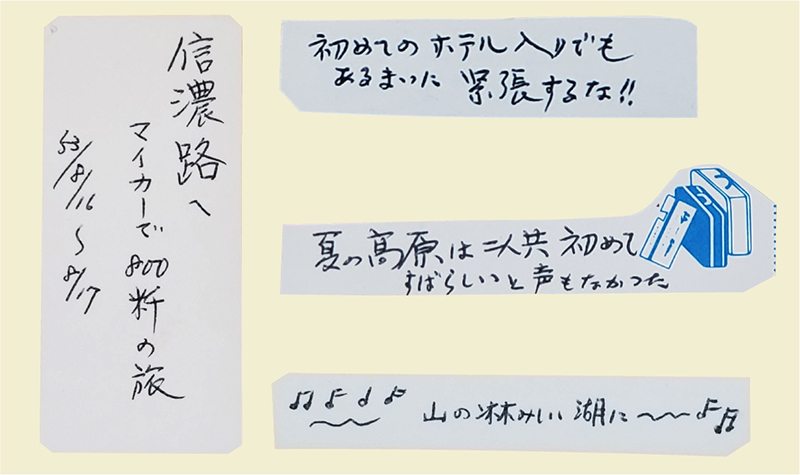 信濃路へ
マイカーで800粁の旅
53/8/16〜8/17
初めてのホテル入りでも
あるまいに 緊張するな!!
夏の高原は二人共初めて
すばらしいっと声もなかった
山の淋みしい湖に〜〜